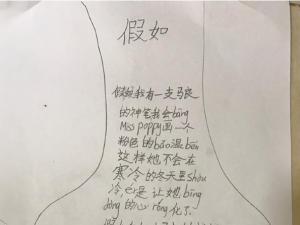 假如
假如我有一支马良
的神笔我会bāng
Miss poppy画一个
粉色的bǎo温bēi
这样她不会在
寒冷的冬天里shòu
冷 让她bīng
dòng的心róng化了